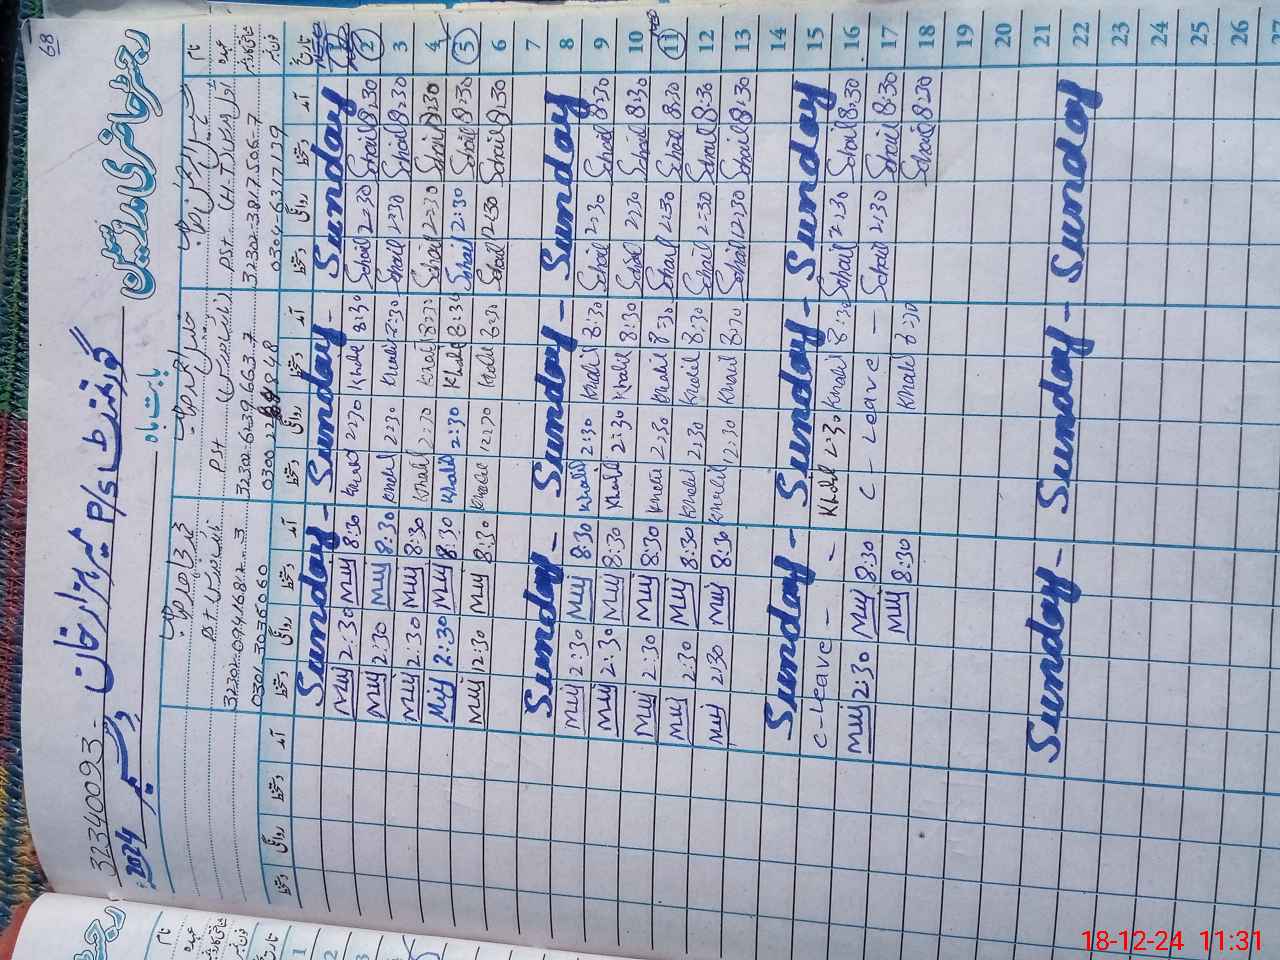 68
رجسٹر حاضری مدرسین
32340093 - گورنمنٹ P/S میر ہزار خان
بابت ماہ دسمبر 2024
نام
عہدہ
شناختی کارڈ نمبر
فون نمبر
PST (H.T)
32302-3817506-7
0304-6317139
PST
32302-6239663-7
PST
32202-0944687-3
0301 3036060
تاریخ آمد دستخط روانگی دستخط آمد دستخط روانگی دستخط آمد دستخط روانگی دستخط آمد دستخط روانگی دستخط
1 Sunday Sunday - Sunday -
2 8:30 Sohail 2:30 Sohail 8:30 Khalil 2:30 Khalil 8:30 Muj 2:30 Muj
3 8:30 Sohail 2:30 Sohail 8:30 Khalil 2:30 Khalil 8:30 Muj 2:30 Muj
4 8:30 Sohail 2:30 Sohail 8:30 Khalil 2:30 Khalil 8:30 Muj 2:30 Muj
5 8:30 Sohail 2:30 Sohail 8:30 Khalil 2:30 Khalil 8:30 Muj 2:30 Muj
6 8:30 Sohail 12:30 Sohail 8:30 Khalil 12:30 Khalil 8:30 Muj 12:30 Muj
7
8 Sunday Sunday - Sunday -
9 8:30 Sohail 2:30 Sohail 8:30 Khalil 2:30 Khalil 8:30 Muj 2:30 Muj
10 8:30 Sohail 2:30 Sohail 8:30 Khalil 2:30 Khalil 8:30 Muj 2:30 Muj
11 8:30 Sohail 2:30 Sohail 8:30 Khalil 2:30 Khalil 8:30 Muj 2:30 Muj
12 8:30 Sohail 2:30 Sohail 8:30 Khalil 2:30 Khalil 8:30 Muj 2:30 Muj
13 8:30 Sohail 12:30 Sohail 8:30 Khalil 12:30 Khalil 8:30 Muj 2:30 Muj
14
15 Sunday Sunday - Sunday -
16 8:30 Sohail 2:30 Sohail 8:30 Khalil 2:30 Khalil - C-Leave -
17 8:30 Sohail 2:30 Sohail - C - Leave - 8:30 Muj 2:30 Muj
18 8:30 Sohail 8:30 Khalil 8:30 Muj
19
20
21
22 Sunday Sunday - Sunday -
23
24
25
26
27
نام
عہدہ
1
2
3
4
5
18-12-24 11:31